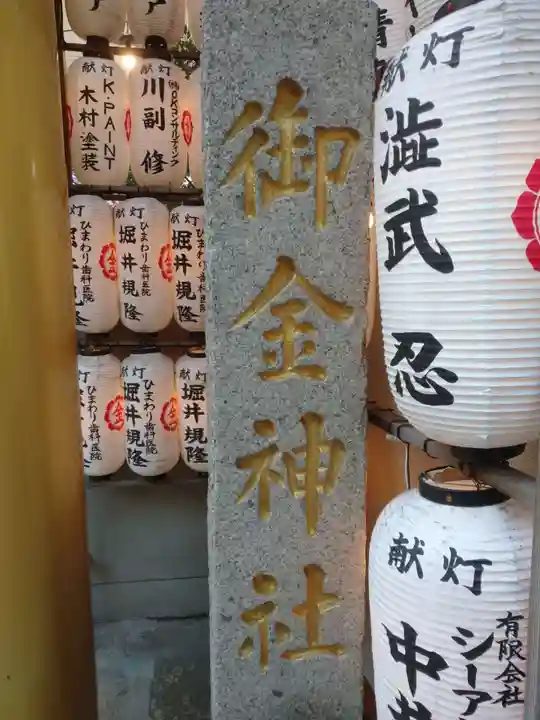 御金神社
献灯
澁武 忍
献灯
有限会社
シーア
中
献灯
K・PAINT
木村塗装
㈱OKコンサルティング
川副 修
献灯
ひまわり歯科医院
堀井規隆
献灯
ひまわり歯科医院
堀井規隆
献灯
堀井規隆
献灯
ひまわり歯科医院
献灯
ひまわり歯科医院
堀井規隆
献灯
堀井規隆